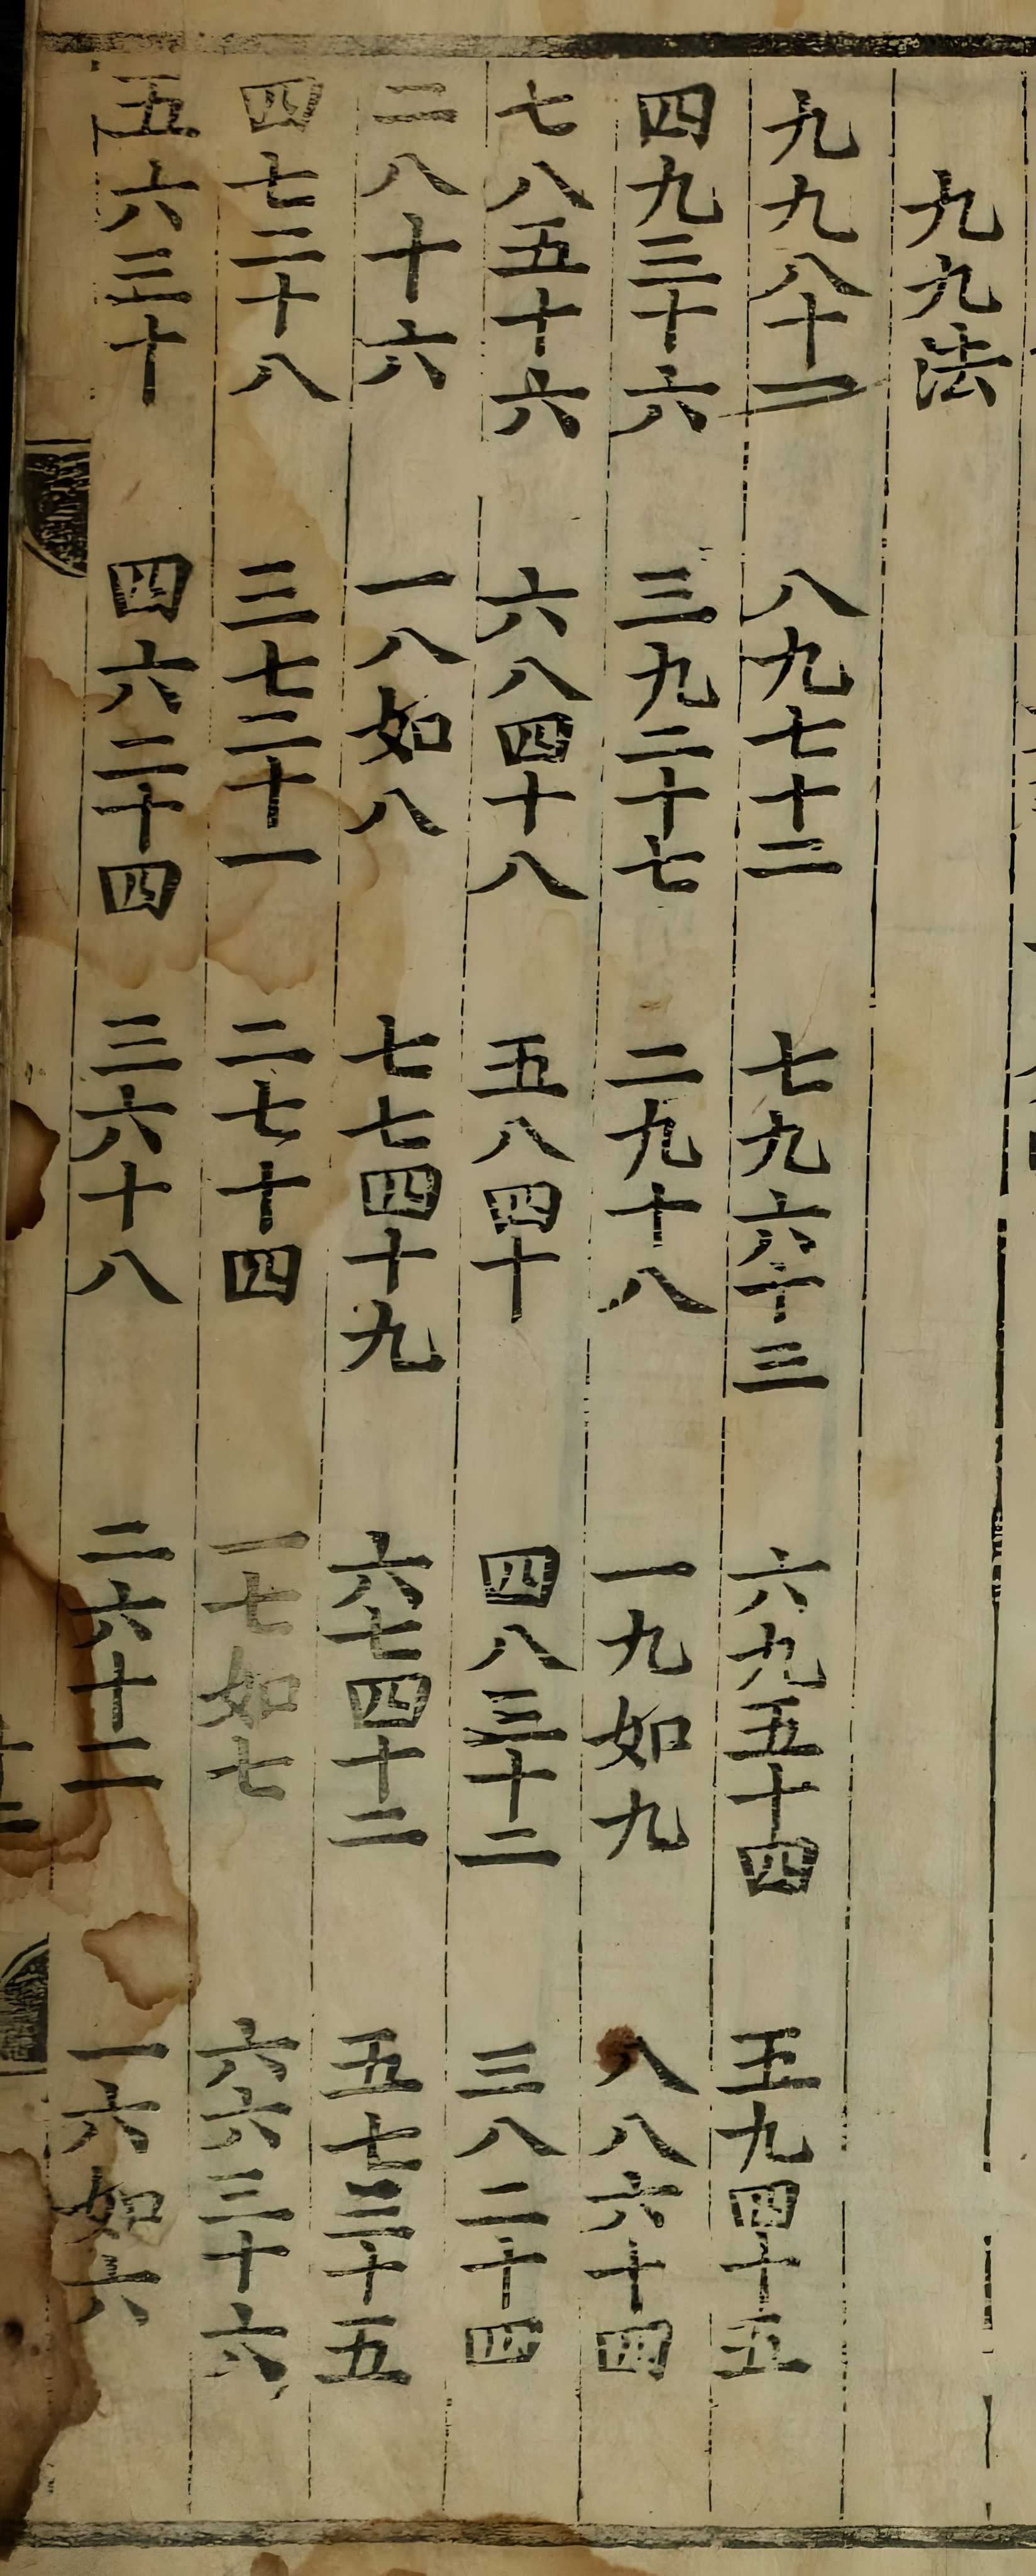 九九法
九九八十一 八九七十二 七九六十三 六九五十四 五九四十五
四九三十六 三九二十七 二九十八 一九如九 八八六十四
七八五十六 六八四十八 五八四十 四八三十二 三八二十四
二八十六 一八如八 七七四十九 六七四十二 五七三十五
四七二十八 三七二十一 二七十四 一七如七 六六三十六
五六三十 四六二十四 三六十八 二六十二 一六如六